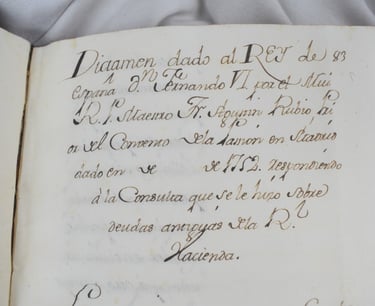 Dictamen dado al REY de 83
España dn. Fernando VI por el Mui
R. P. Maestro Fr. Agustin Rubio Pri
or del Convento de la Passion en Madrid
dado en de de 1752. Respondiendo
â la Consulta que se le hizo sobre
deudas antiguas de la Rl
Hacienda.